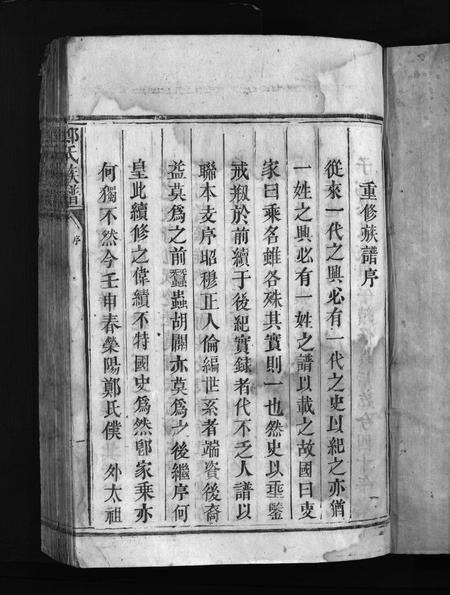 重修族譜序
從來一代之興必有一代之史以紀之亦猶
一姓之興必有一姓之譜以載之故國曰史
家曰乘名雖各殊其實則一也然史以垂鑒
戒叙於前續于後紀實錄者代不乏人譜以
聯本支序昭穆正人倫編世系者端資後裔
益莫為之前蠶蟲胡關亦莫為之後繼序何
皇此續修之偉績不特國史為然卽家乘亦
何獨不然今壬申春滎陽鄭氏僕 外太祖
鄭氏族譜
序
一